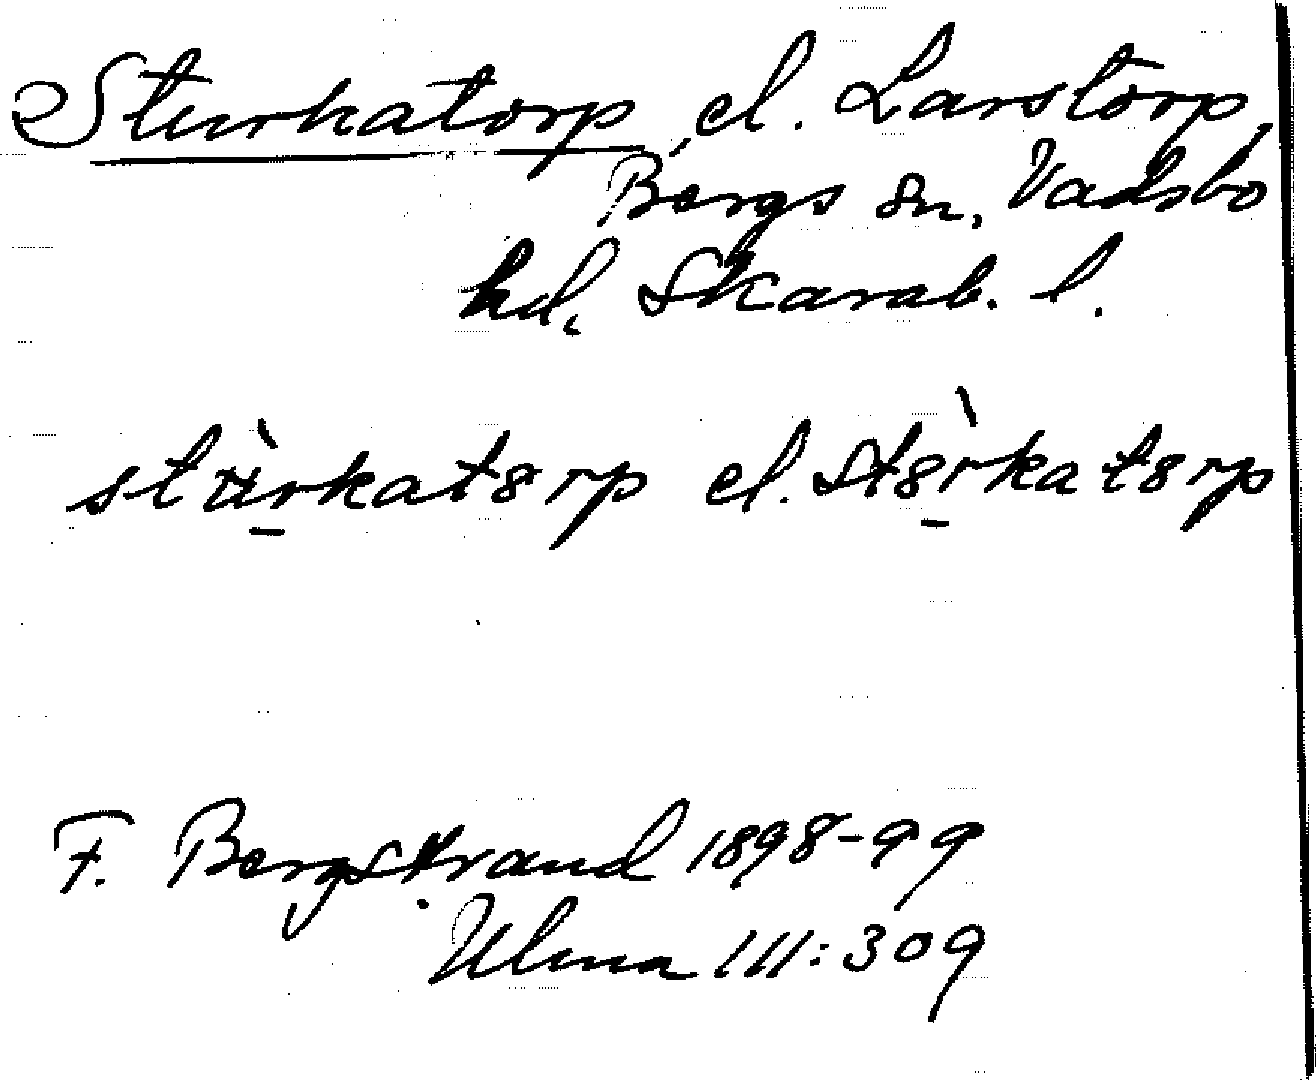 Sturkatorp, el. Larstorp,
Bergs sn, Vadsbo
hd, Skarab. l.
stùrkatȣrp el. stȣ̀rkatȣrp
F. Bergstrand 1898-99
Ulma 111:309